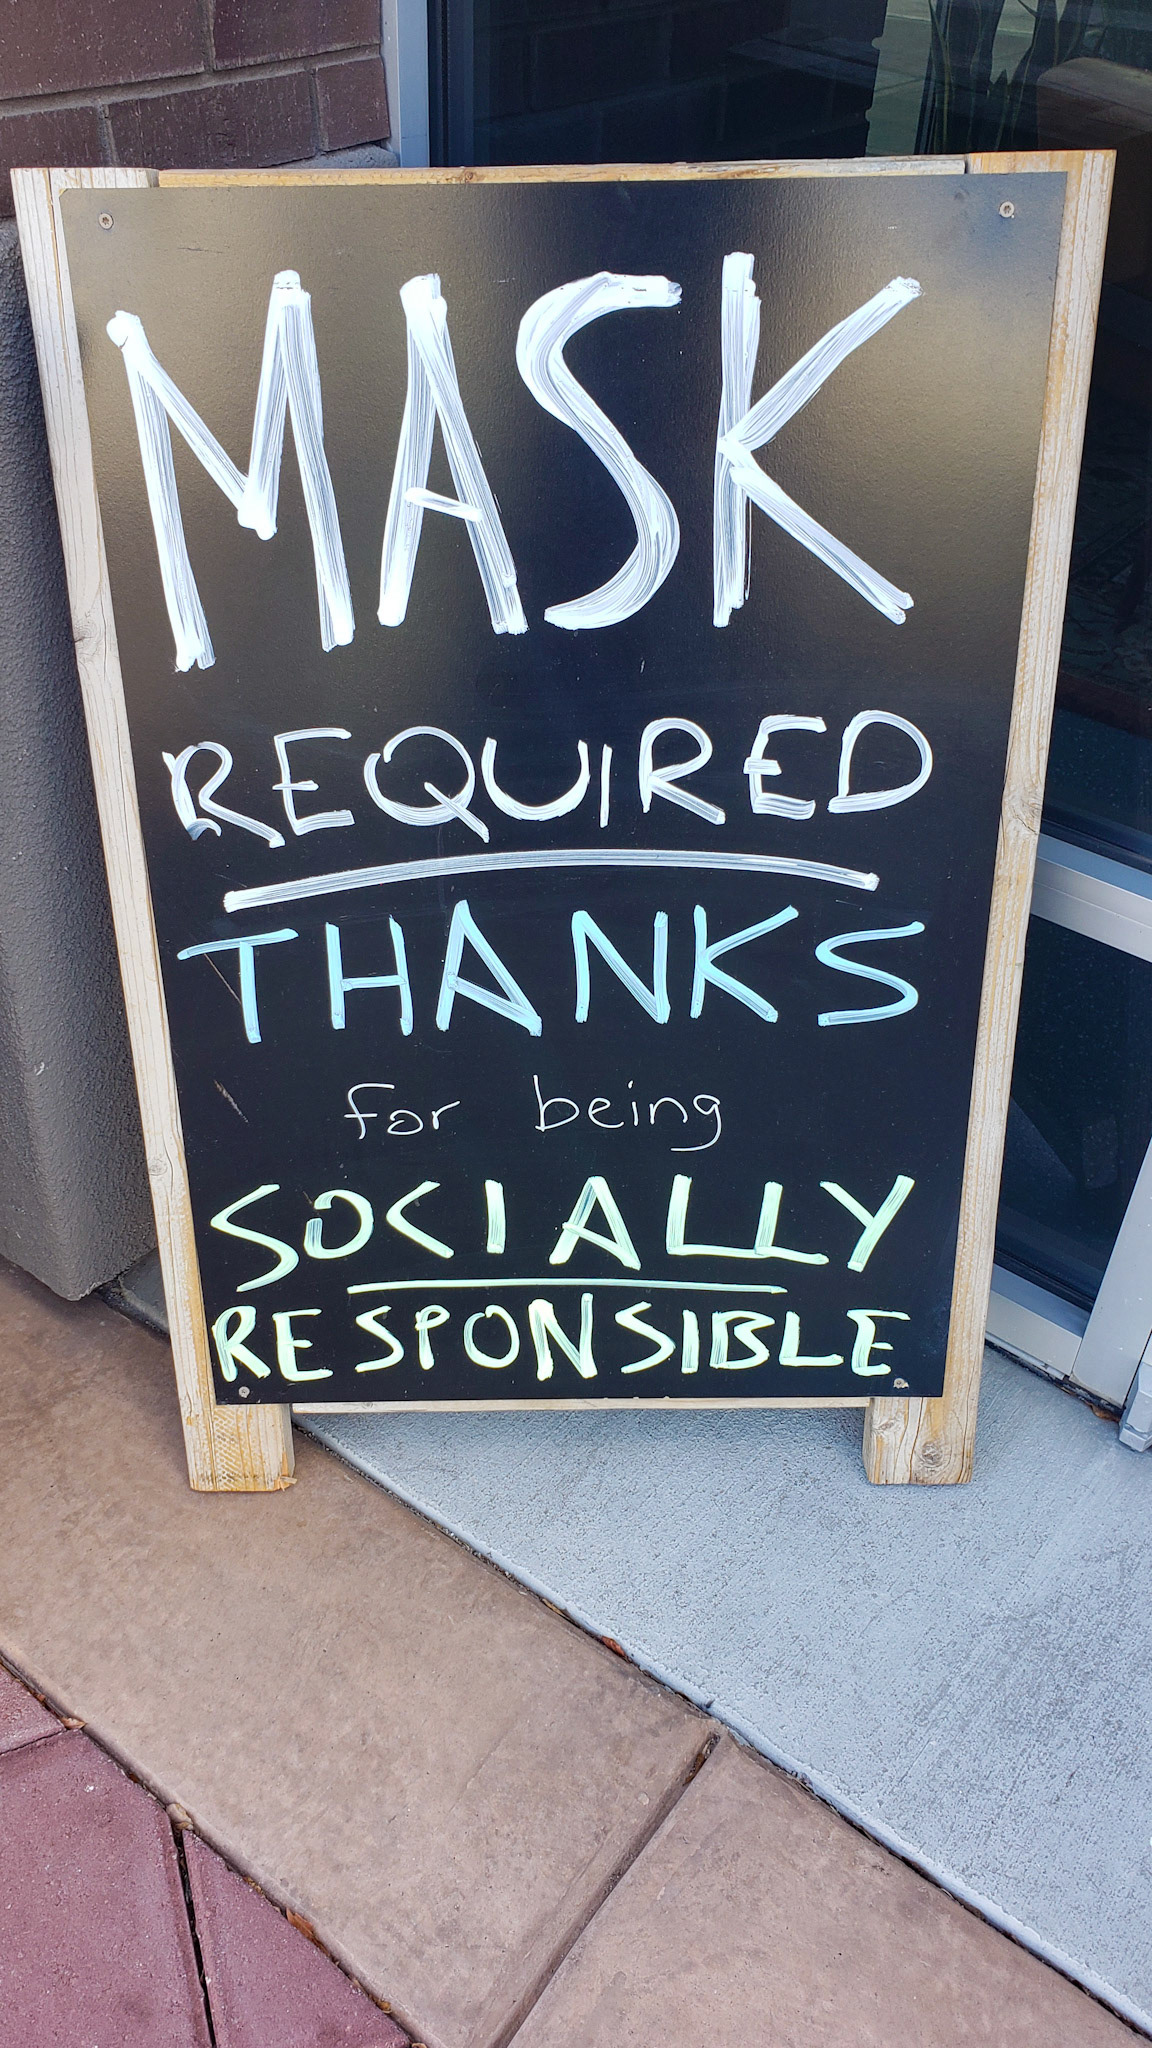 MASK
REQUIRED
THANKS
for being
SOCIALLY
RESPONSIBLE